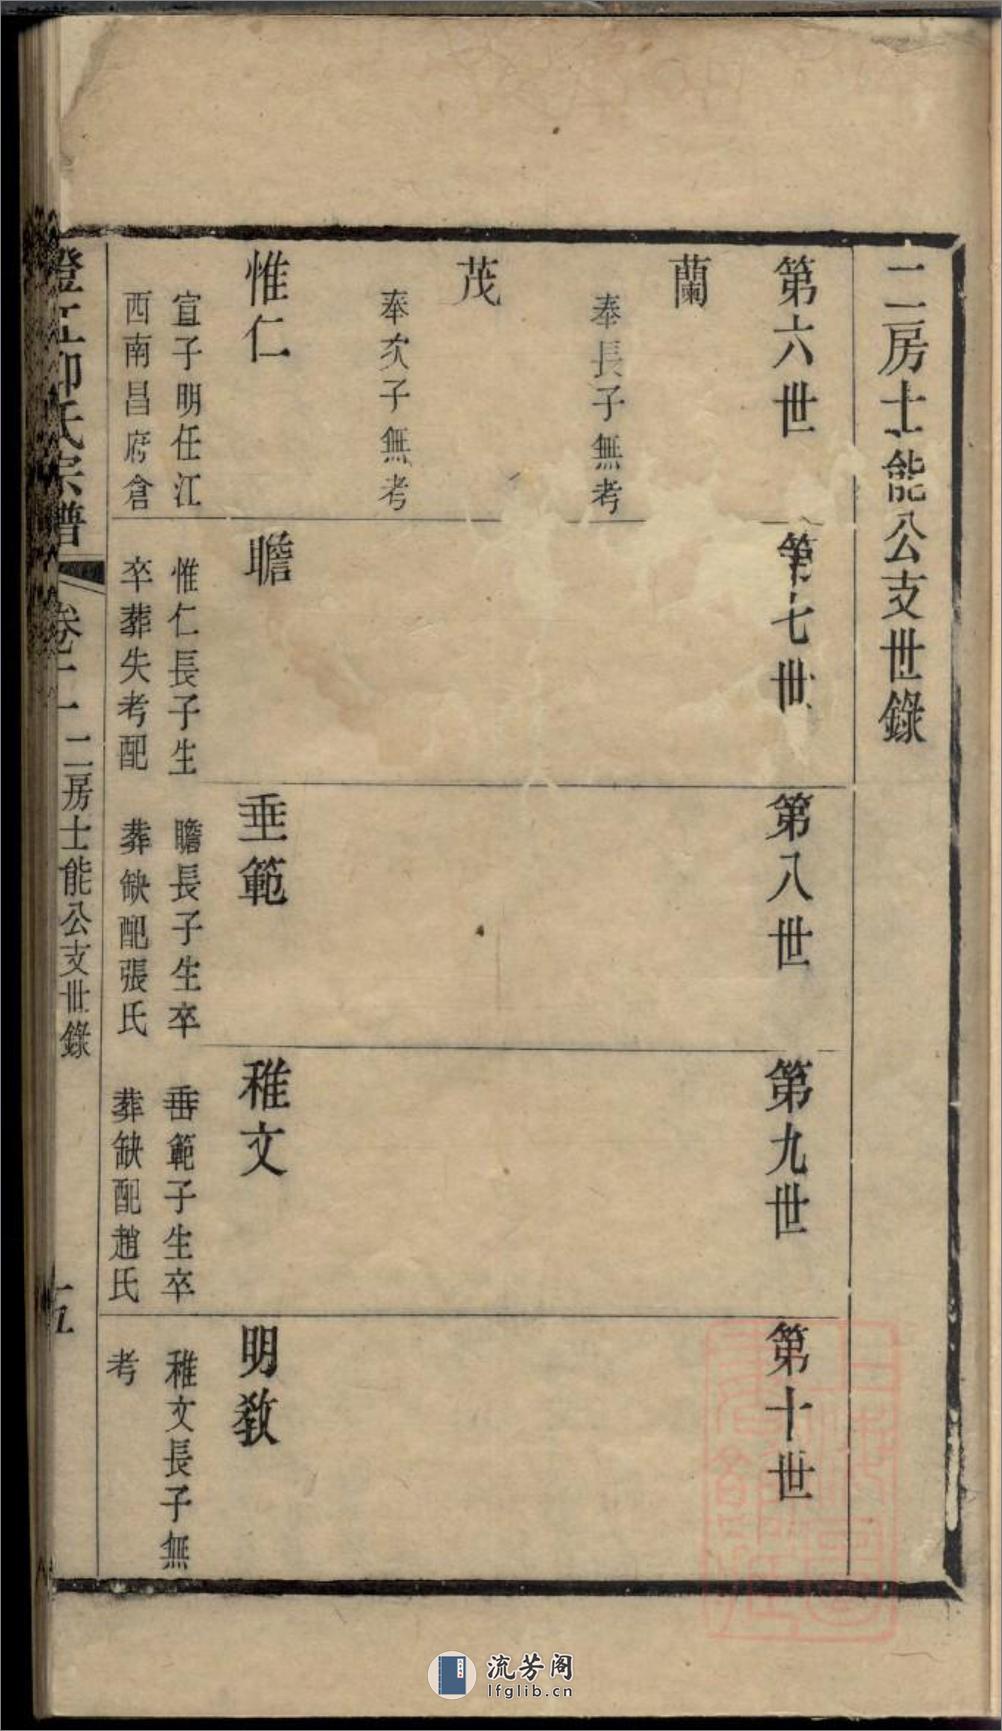 二房士能公支世錄
第六世
第七世
第八世
第九世
第十世
蘭
奉長子無考
茂
奉次子無考
惟仁
宣子明任江
西南昌府倉
瞻
惟仁長子生
卒葬失考配
垂範
瞻長子生卒
葬缺配張氏
稚文
垂範子生卒
葬缺配趙氏
明敎
稚文長子無
考
澄江柳氏宗譜
卷二
二房士能公支世錄
五
流芳阁
lfglib.cn